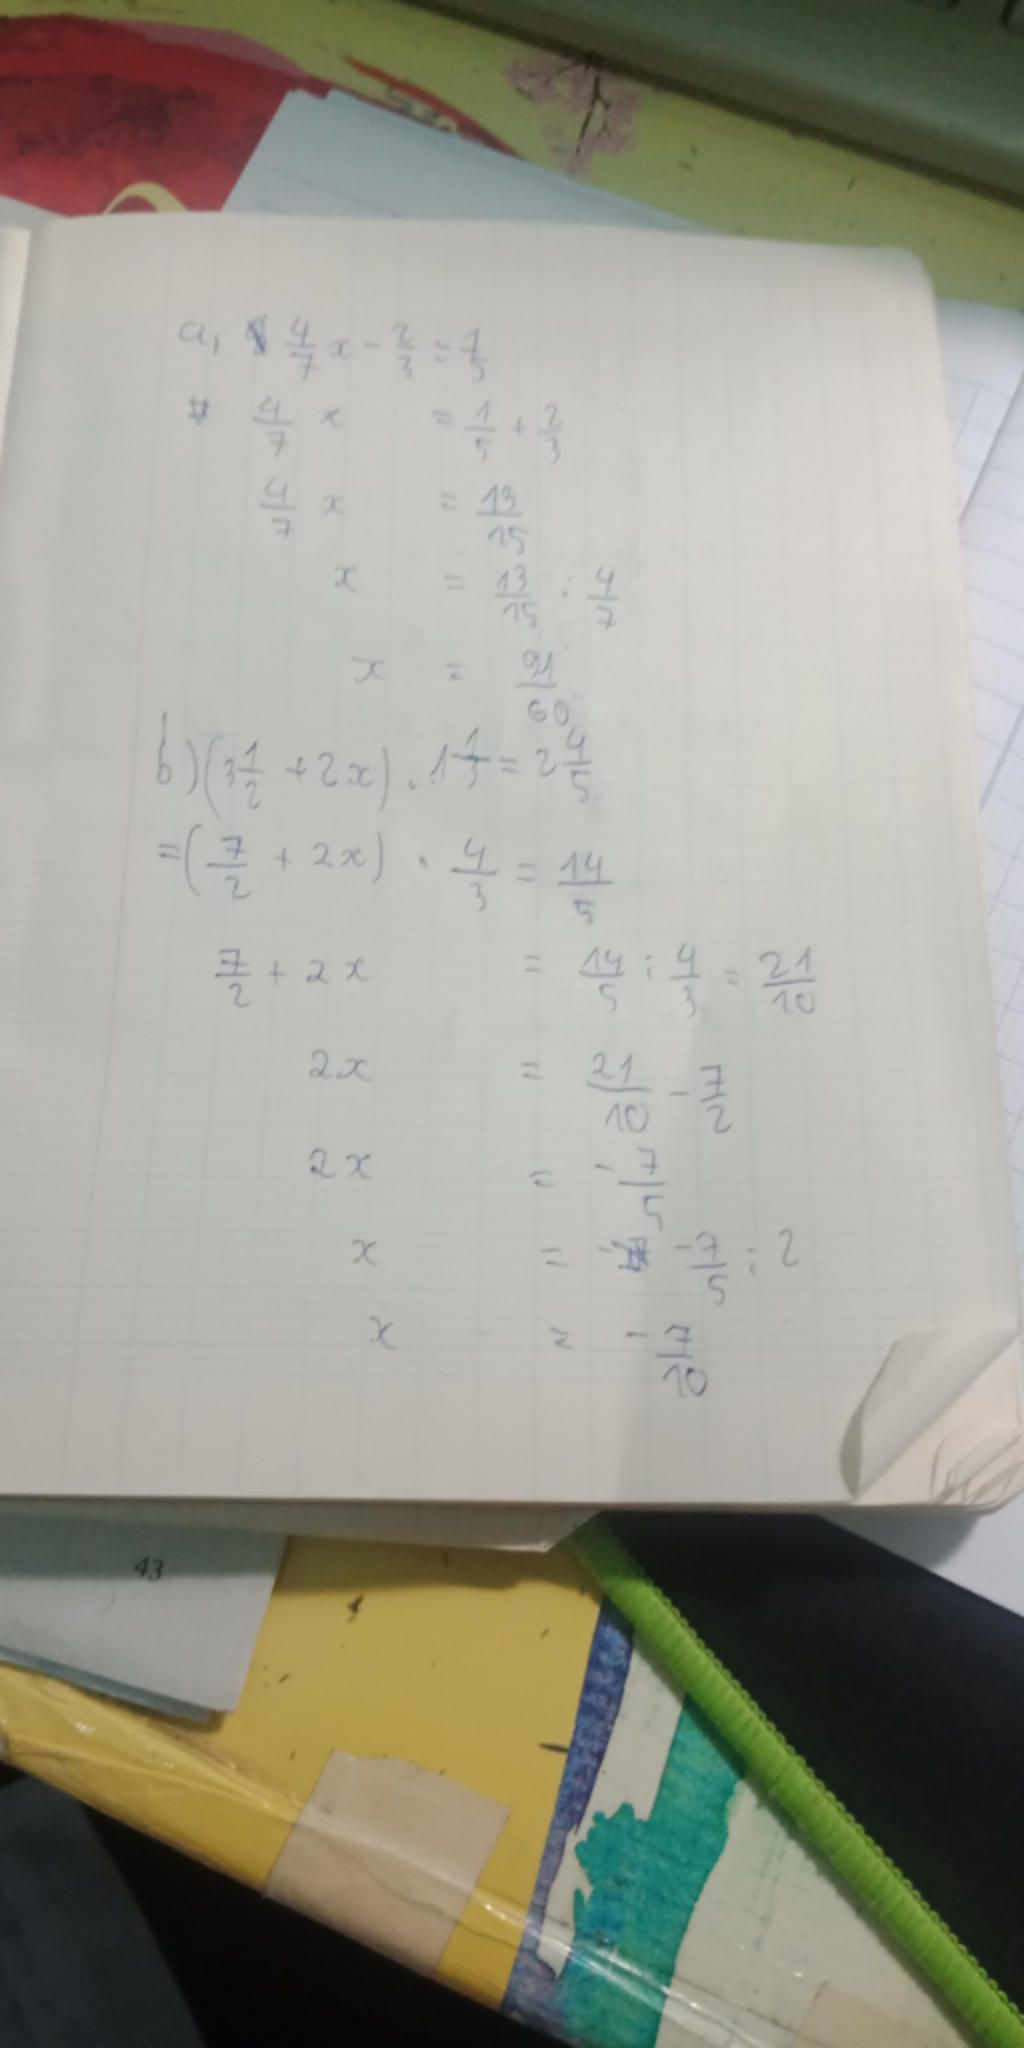 a, 4/7 x - 2/3 = 1/5
4/7 x = 1/5 + 2/3
4/7 x = 13/15
x = 13/15 : 4/7
x = 91/60
b) (3 1/2 + 2x) . 1 1/3 = 2 4/5
= (7/2 + 2x) . 4/3 = 14/5
7/2 + 2x = 14/5 : 4/3 = 21/10
2x = 21/10 - 7/2
2x = -7/5
x = -7/5 : 2
x = -7/10
43